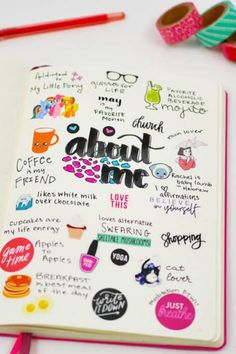 Addicted to
My Little Pony
glasses for
LIFE
FAVORITE
ALCOHOLIC
BEVERAGE
mojito
may
is my
Favorite
Month
church
rain lover
COFFEE
is my
FRIEND
about
me
Rachel is
baby lamb
in Hebrew
likes white milk
over chocolate
LOVE
THIS
affirmations
BELIEVE
in yourself
CUPCAKES are
my life energy
loves alternative
SWEARING
SHIITAKE MUSHROOMS
shopping
GAME
TIME
Apples
to
Apples
YOGA
cat
lover
BREAKFAST
is best meal
of the day
write
IT DOWN
JUST
breathe